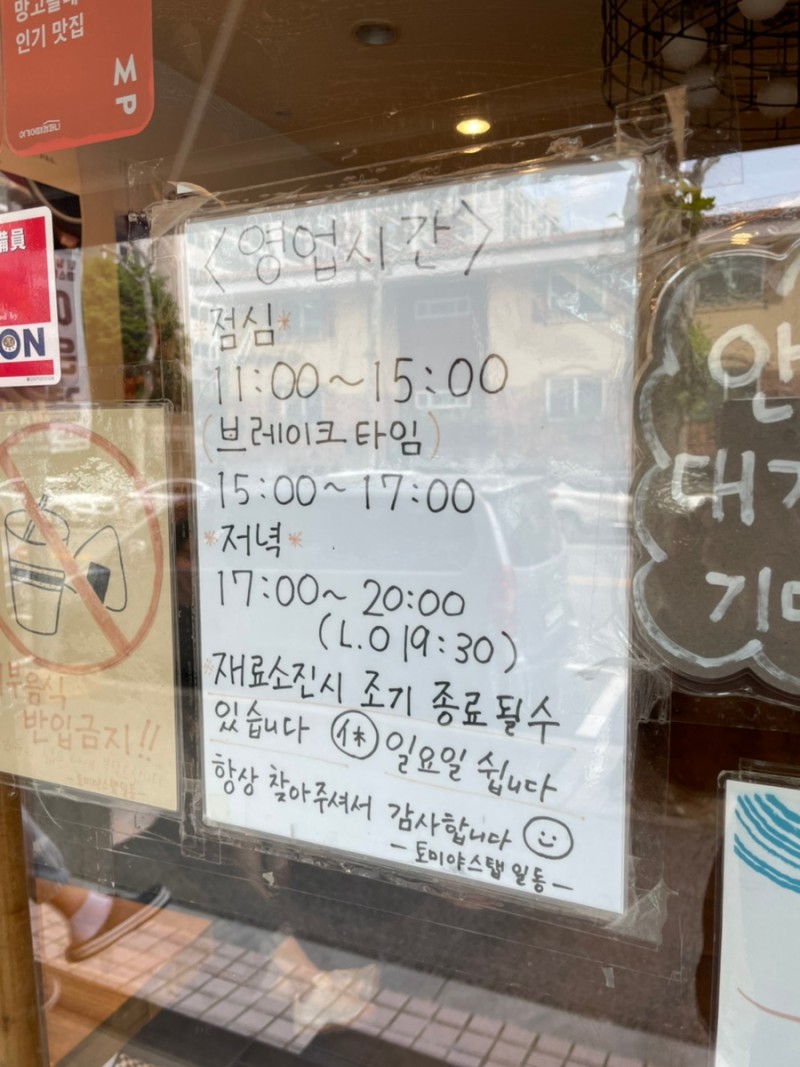 망고플레
인기 맛집
MP
備員
ON
<영업시간>
*점심*
11:00~15:00
(브레이크타임)
15:00~17:00
*저녁*
17:00~20:00
(L.O 19:30)
*재료소진시 조기 종료될수
있습니다 休 일요일 쉽니다
항상 찾아주셔서 감사합니다
- 토미야스탭 일동 -
음식
반입금지!!
대기